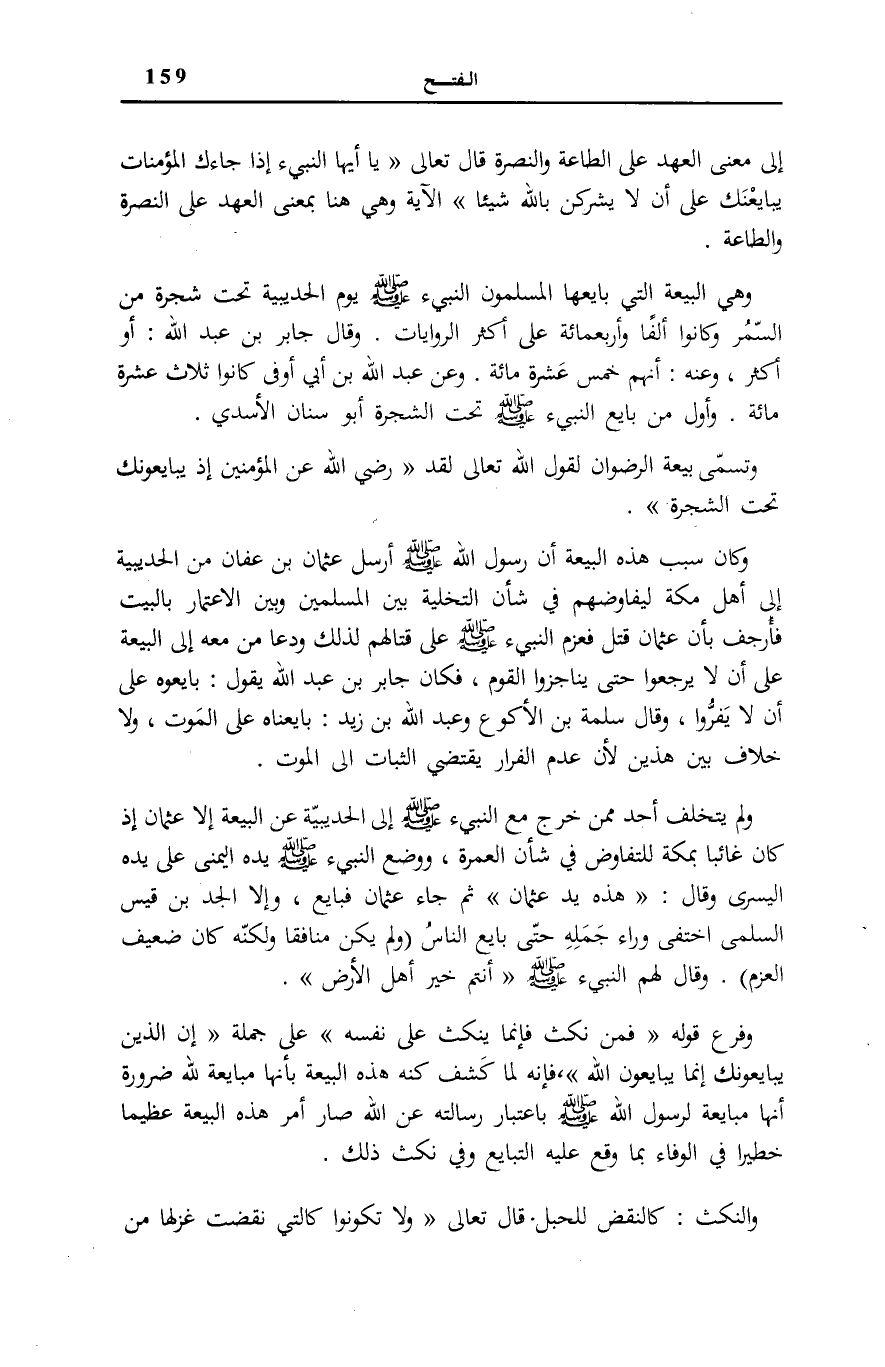 159 الفتـــح
إلى معنى العهد على الطاعة والنصرة قال تعالى « يا أيها النبيء إذا جاءك المؤمنات
يبايعْنَك على أن لا يشركن بالله شيئا » الآية وهي هنا بمعنى العهد على النصرة
والطاعة .
وهي البيعة التي بايعها المسلمون النبيء ﷺ يوم الحديبية تحت شجرة من
السّمُر وكانوا ألفًا وأربعمائة على أكثر الروايات . وقال جابر بن عبد الله : أو
أكثر ، وعنه : أنهم خمس عَشرة مائة . وعن عبد الله بن أبي أوفى كانوا ثلاث عشرة
مائة . وأول من بايع النبيء ﷺ تحت الشجرة أبو سنان الأسدي .
وتسمّى بيعة الرضوان لقول الله تعالى لقد « رضي الله عن المؤمنين إذ يبايعونك
تحت الشجرة » .
وكان سبب هذه البيعة أن رسول الله ﷺ أرسل عثمان بن عفان من الحديبية
إلى أهل مكة ليفاوضهم في شأن التخلية بين المسلمين وبين الاعتمار بالبيت
فأُرجف بأن عثمان قتل فعزم النبيء ﷺ على قتالهم لذلك ودعا من معه إلى البيعة
على أن لا يرجعوا حتى يناجزوا القوم ، فكان جابر بن عبد الله يقول : بايعوه على
أن لا يَفرُّوا ، وقال سلمة بن الأكوع وعبد الله بن زيد : بايعناه على المَوت ، ولا
خلاف بين هذين لأن عدم الفرار يقتضي الثبات الى الموت .
ولم يتخلف أحد ممن خرج مع النبيء ﷺ إلى الحديبيّة عن البيعة إلا عثمان إذ
كان غائبا بمكة للتفاوض في شأن العمرة ، ووضع النبيء ﷺ يده اليمنى على يده
اليسرى وقال : « هذه يد عثمان » ثم جاء عثمان فبايع ، وإلا الجد بن قيس
السلمى اختفى وراء جَمَلِهِ حتّى بايع الناسُ (ولم يكن منافقا ولكنّه كان ضعيف
العزم) . وقال لهم النبيء ﷺ « أنتم خير أهل الأرض » .
وفرع قوله « فمن نكث فإنما ينكث على نفسه » على جملة « إن الذين
يبايعونك إنما يبايعون الله »،فإنه لما كَشف كنه هذه البيعة بأنها مبايعة لله ضرورة
أنها مبايعة لرسول الله ﷺ باعتبار رسالته عن الله صار أمر هذه البيعة عظيما
خطيرا في الوفاء بما وقع عليه التبايع وفي نكث ذلك .
والنكث : كالنقض للحبل. قال تعالى « ولا تكونوا كالتي نقضت غزلها من